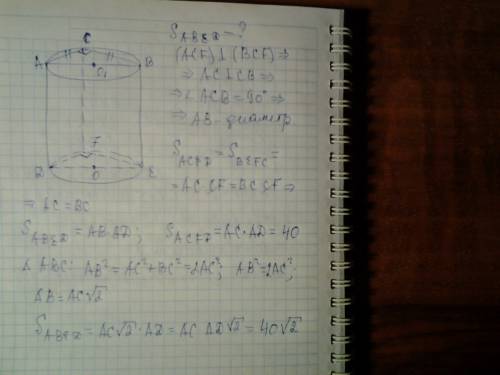 C
A
O₁
B
F
D
O
E
S_ABED = ?
(ACF) ⊥ (BCF) ⇒
⇒ AC ⊥ CB ⇒
⇒ ∠ ACB = 90° ⇒
⇒ AB - диаметр
S_ACFD = S_BEFC =
= AC·CF = BC·CF ⇒
⇒ AC = BC
S_ABED = AB·AD; S_ACFD = AC·AD = 40
Δ ABC: AB² = AC² + BC² = 2AC²; AB² = 2AC²;
AB = AC√2
S_ABED = AC√2·AD = AC·AD√2 = 40√2